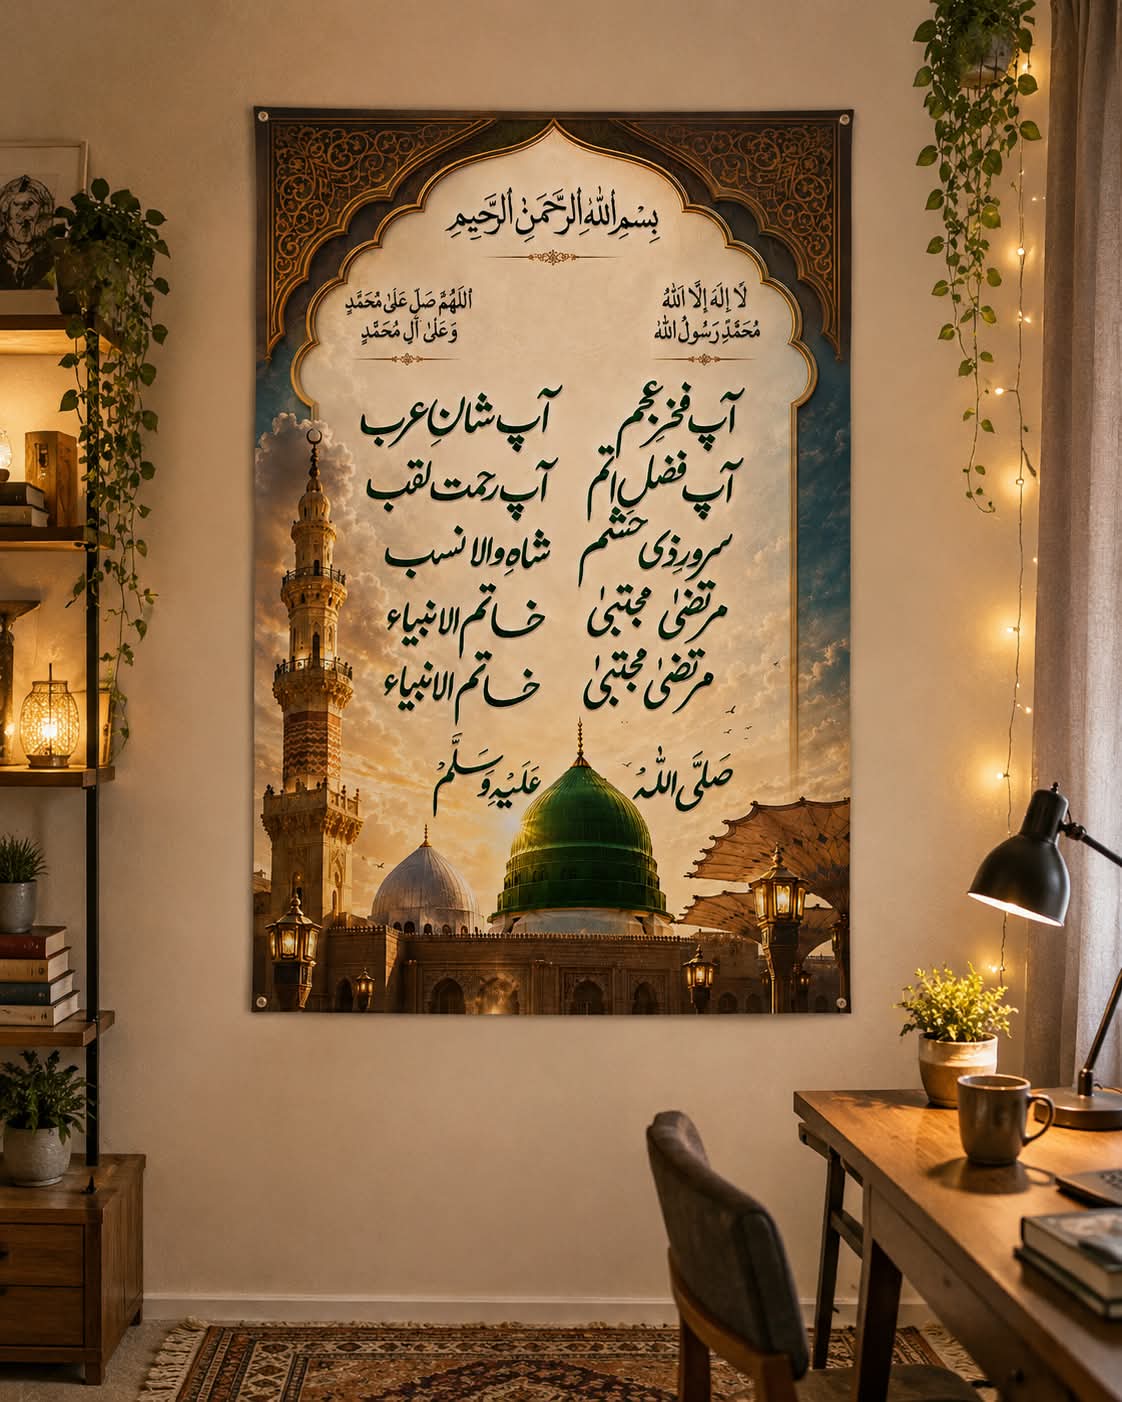 بِسْمِ ٱللَّٰهِ ٱلرَّحْمَٰنِ ٱلرَّحِيمِ
لَا إِلَهَ إِلَّا اللهُ
مُحَمَّدٌ رَسُولُ الله
اَللّٰهُمَّ صَلِّ عَلَىٰ مُحَمَّدٍ
وَعَلَىٰ آلِ مُحَمَّدٍ
آپ فخرِ عجم آپ شانِ عرب
آپ فضلِ اتم آپ رحمت لقب
سرورِ ذی حشم شاہِ والا نسب
مرتضیٰ مجتبیٰ خاتم الانبیاء
مرتضیٰ مجتبیٰ خاتم الانبیاء
صَلَّی اللّٰہُ عَلَیْہِ وَسَلَّمْ